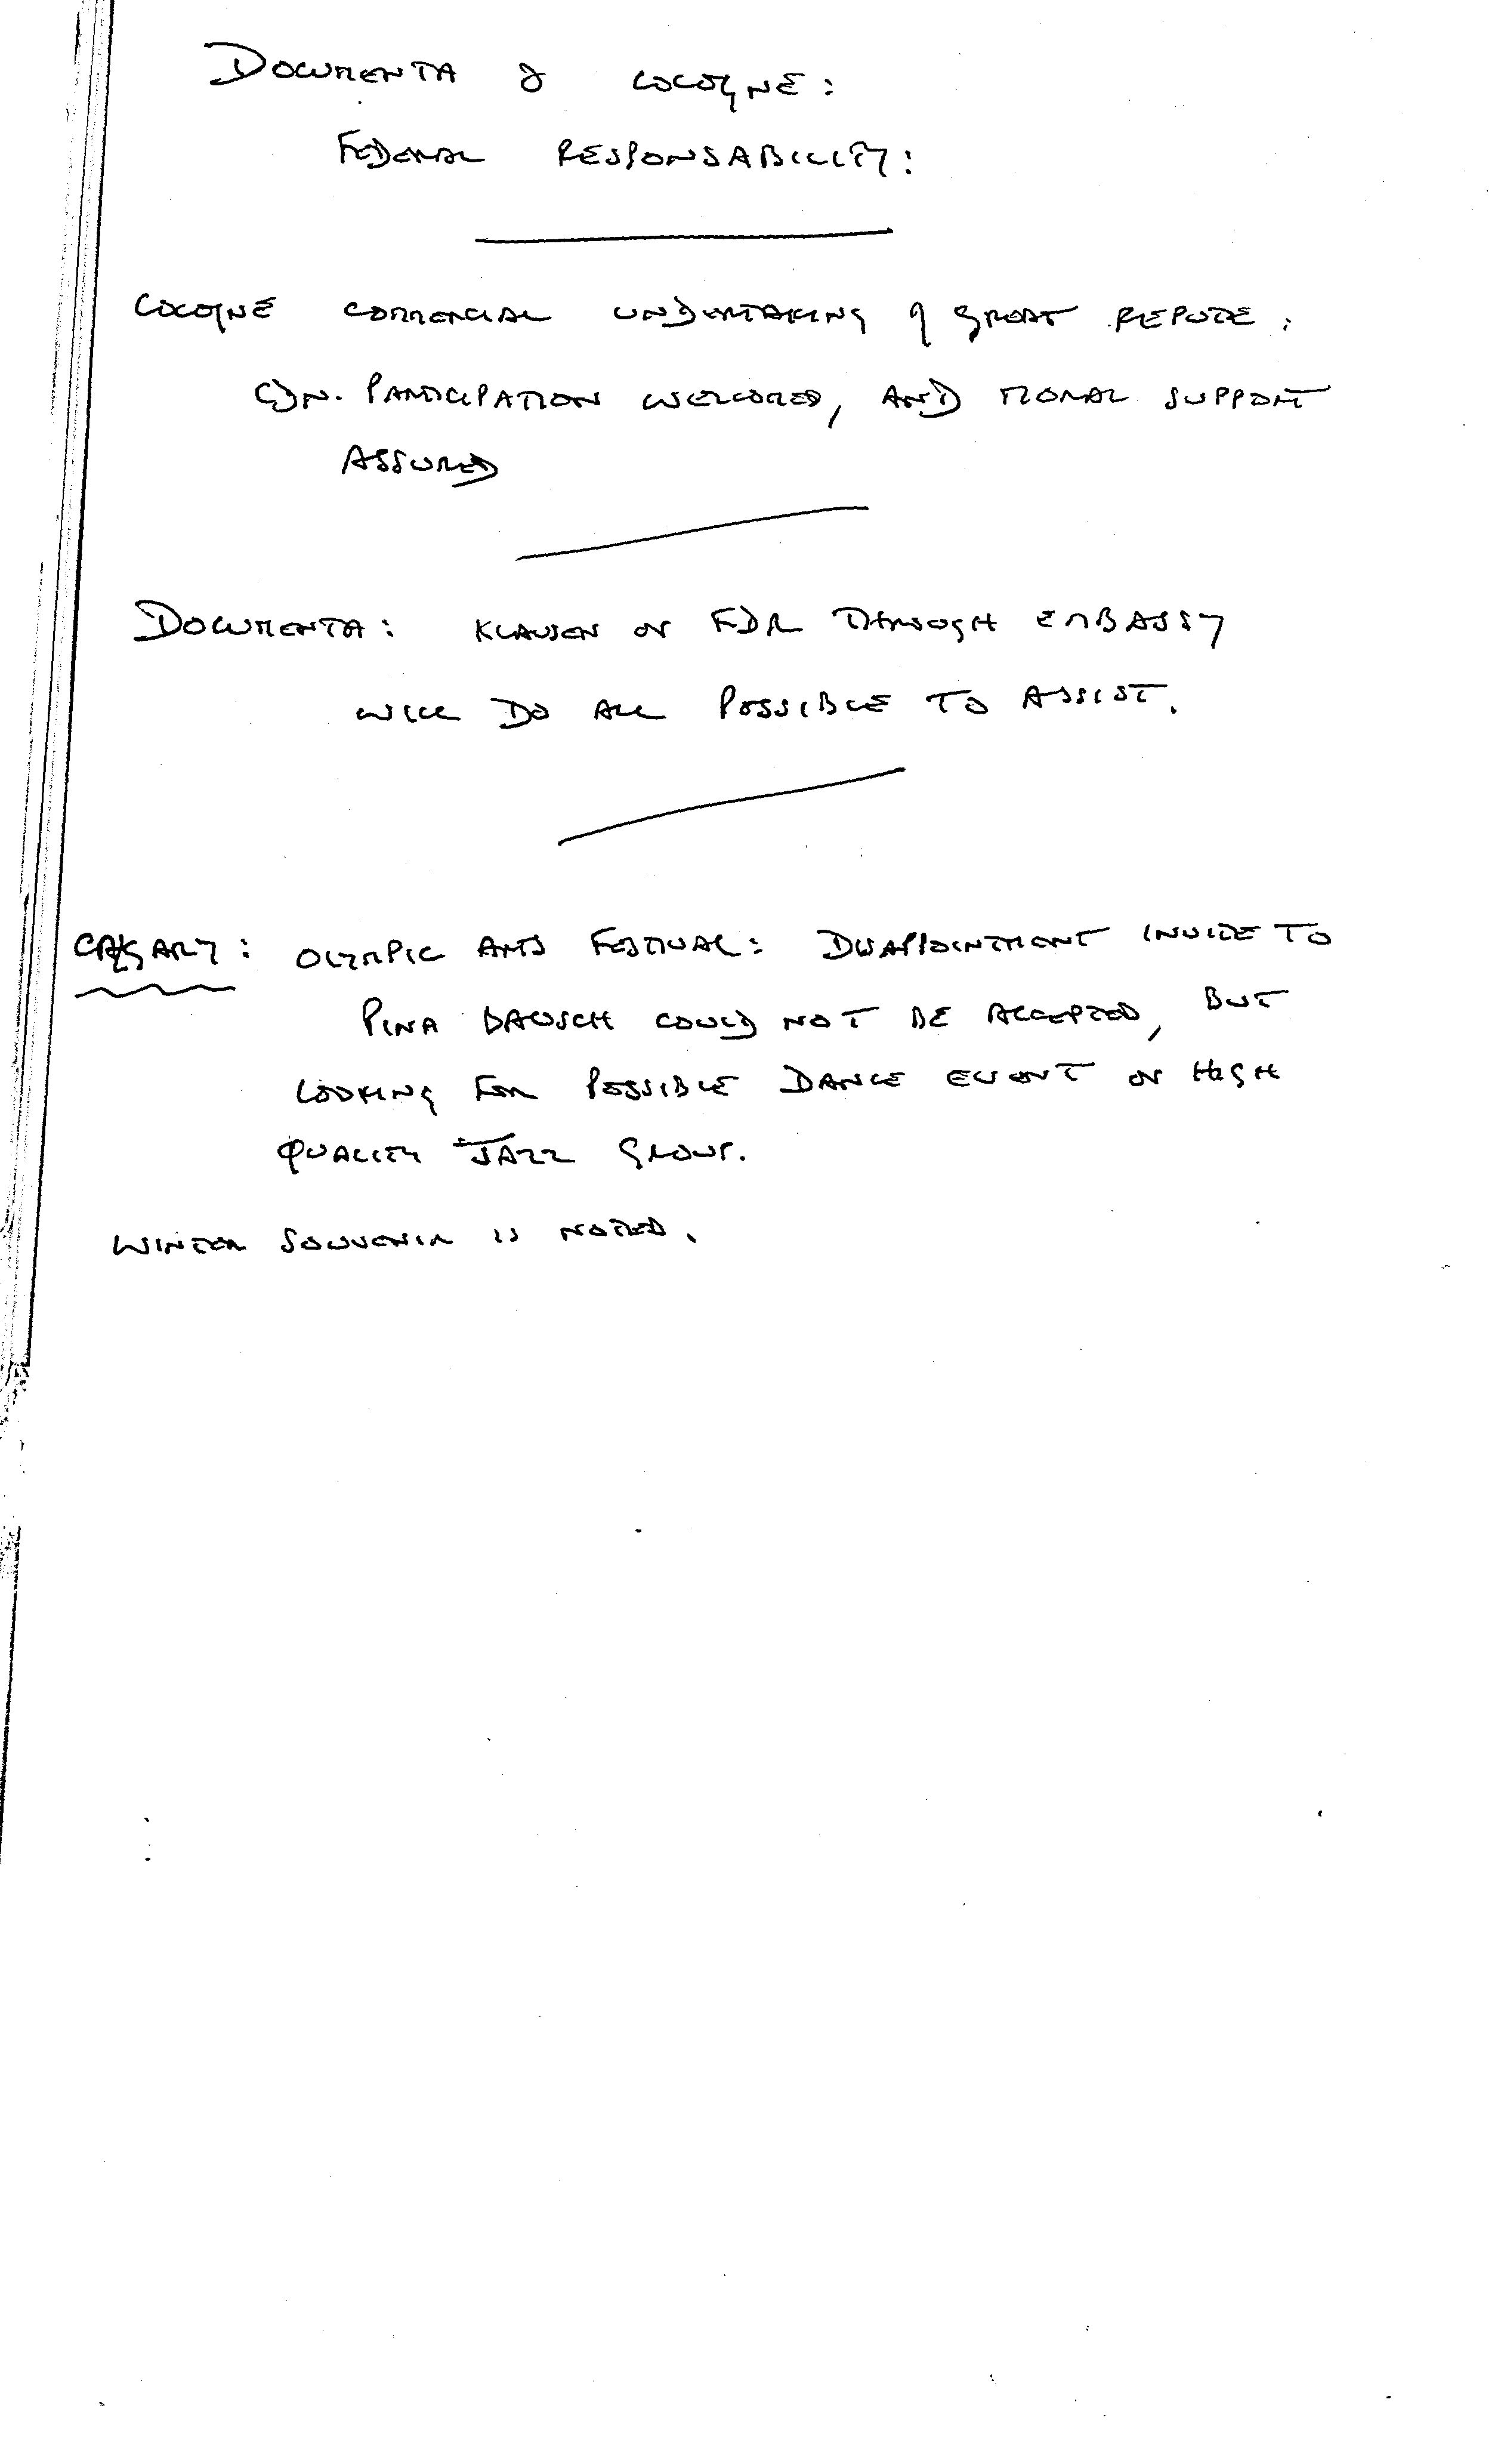 DOCUMENTA & COLOGNE:
FEDERAL RESPONSABILITY:
COLOGNE COMMERCIAL UNDERTAKING OF GREAT REPUTE:
CDN. PARTICIPATION WELCOMED, AND MORAL SUPPORT
ASSURED
DOCUMENTA: KLAUSEN OR FDR THROUGH EMBASSY
WILL DO ALL POSSIBLE TO ASSIST.
CALGARY: OLYMPIC ARTS FESTIVAL: DISAPPOINTMENT INVITE TO
PINA BAUSCH COULD NOT BE ACCEPTED, BUT
LOOKING FOR POSSIBLE DANCE EVENT OR HIGH
QUALITY JAZZ GROUP.
WINTER SOUVENIR IS NOTED.